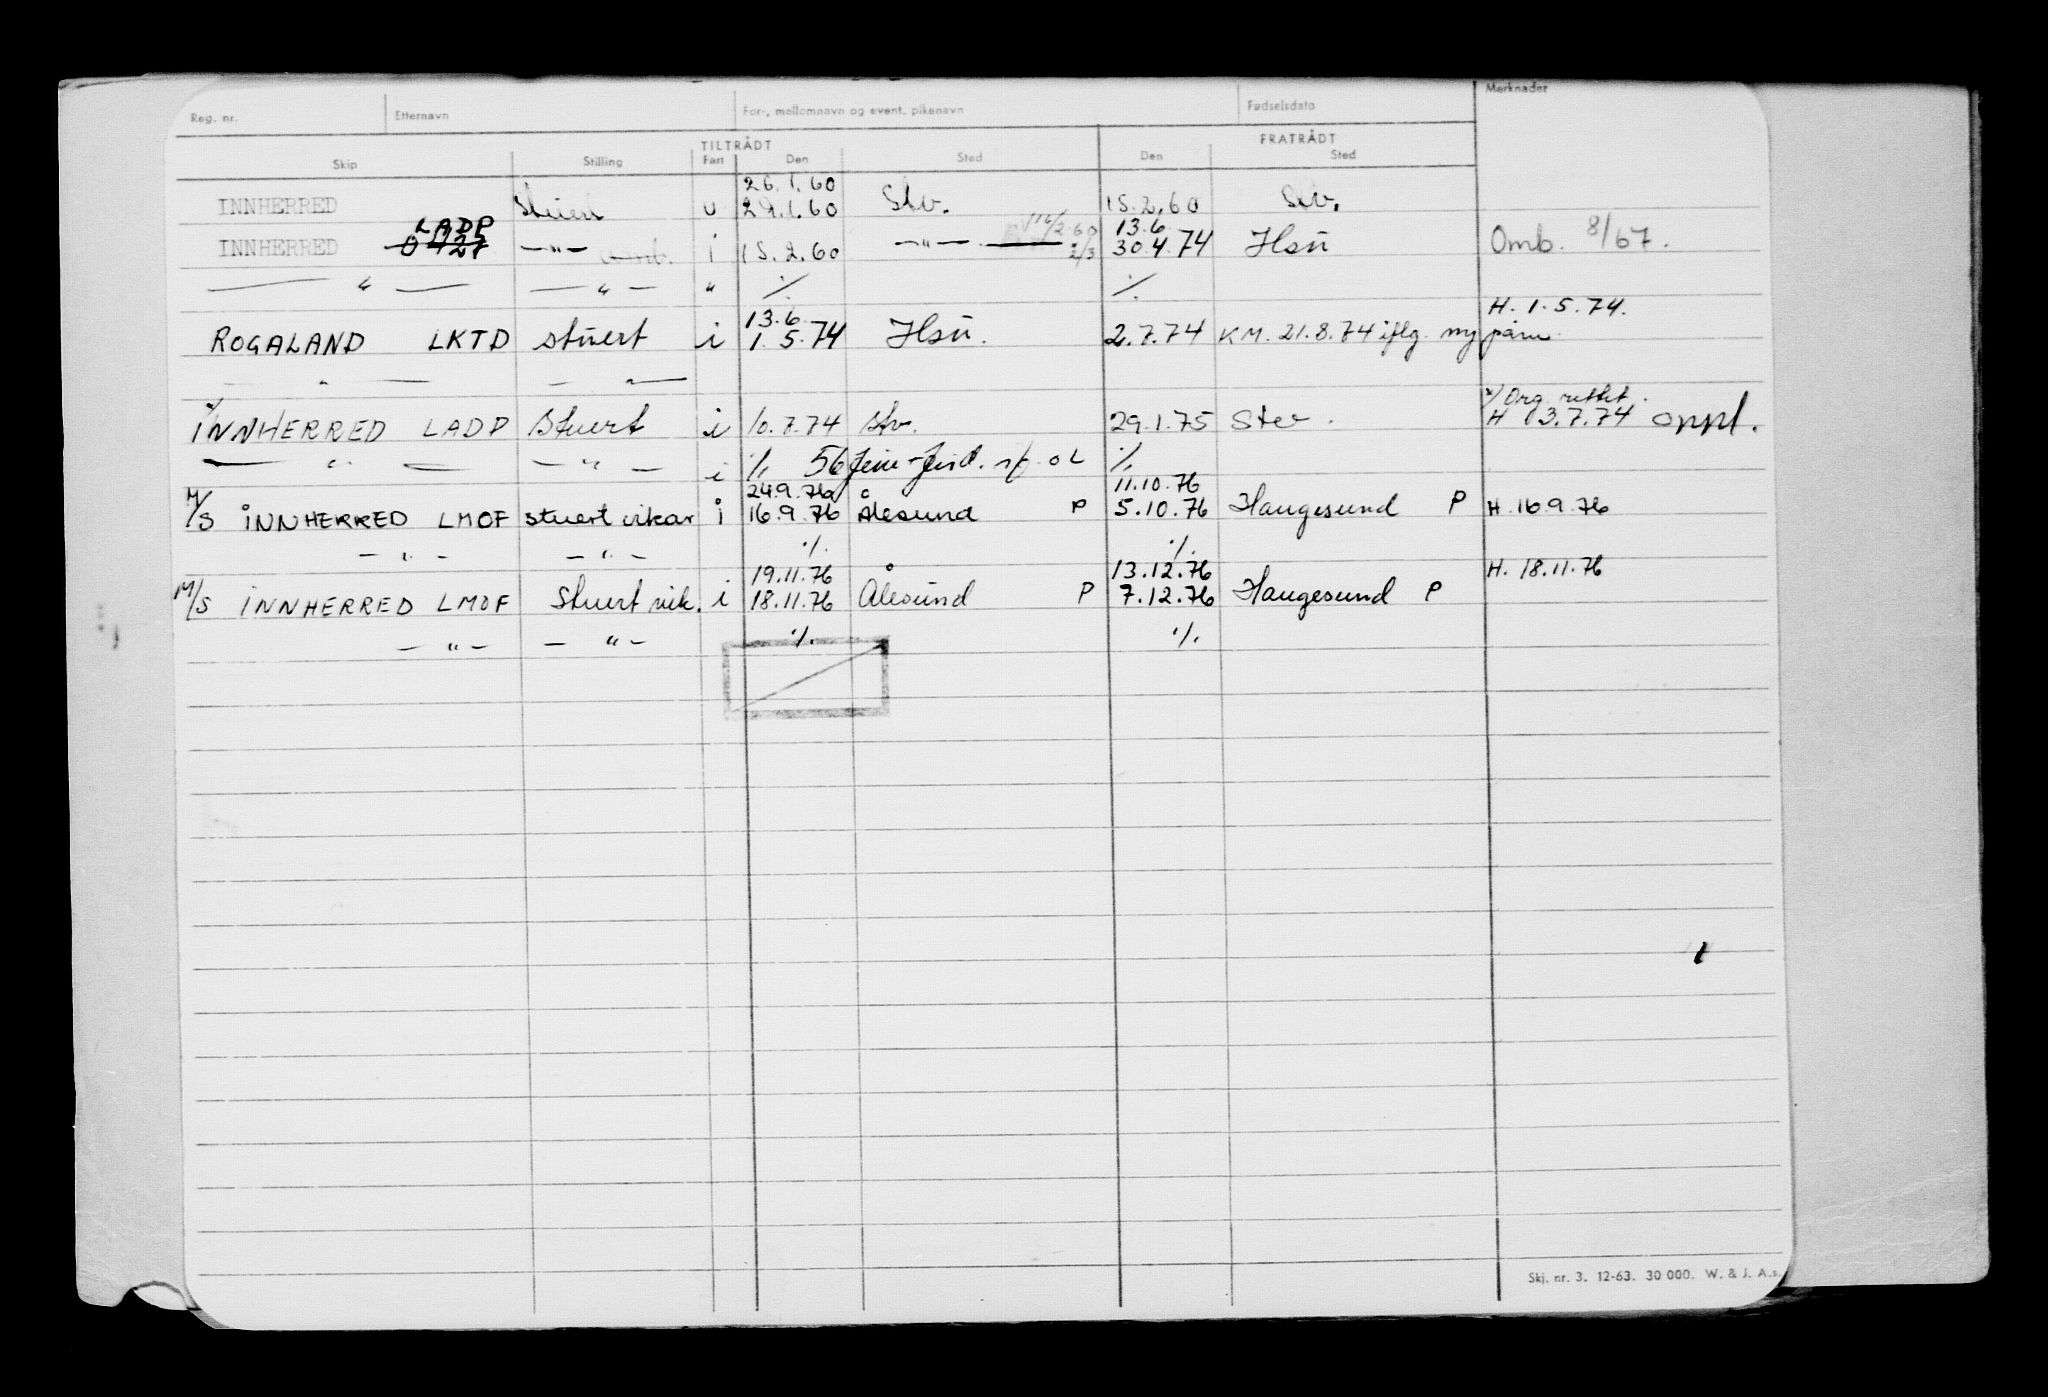 Reg. nr. Etternavn For-, mellomnavn og event. pikenavn Fødselsdato Merknader
TILTRÅDT FRATRÅDT
Skip Stilling Fart Den Sted Den Sted
26.1.60
INNHERRED Stuert u 29.1.60 Stv. 15.2.60 Stv.
LADP 13.6
INNHERRED 0427 —"— Omb. i 15.2.60 —"— 2/3 30.4.74 Hsu Omb. 8/67.
— " — — " — " ·/. ·/.
13.6 H. 1.5.74.
ROGALAND LKTD stuert i 1.5.74 Hsu. 2.7.74 KM. 21.8.74 iflg. ny pårm.
— " — — " —
x/ Org. rettet.
INNHERRED LADP Stuert i 10.7.74 Stv. 29.1.75 Stv. H 03.7.74 oppl.
— " — — " — i ·/. 56 ·/.
24.9.76 11.10.76
M/S INNHERRED LMOF stuert vikar i 16.9.76 Ålesund P 5.10.76 Haugesund P H. 16.9.76
— " — — " — ·/. ·/.
19.11.76 13.12.76 H. 18.11.76
M/S INNHERRED LMOF Stuert vik. i 18.11.76 Ålesund P 7.12.76 Haugesund P
— " — — " — ·/. ·/.
Skj. nr. 3. 12-63. 30 000. W. & J. A.s.